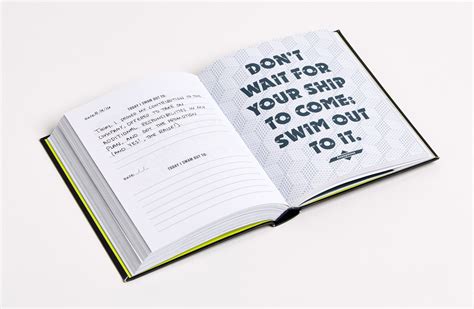 DATE:
TODAY I SWAM OUT TO:
I MY CONTRIBUTION TO THE
COMPANY, OFFERED TO TAKE ON
ADDITIONAL RESPONSIBILITIES IN
PLAN, AND GOT THE PROMOTION
(AND YES, THE RAISE!)
DATE:
TODAY I SWAM OUT TO:
DON'T
WAIT FOR
YOUR SHIP
TO COME;
SWIM OUT
TO IT.